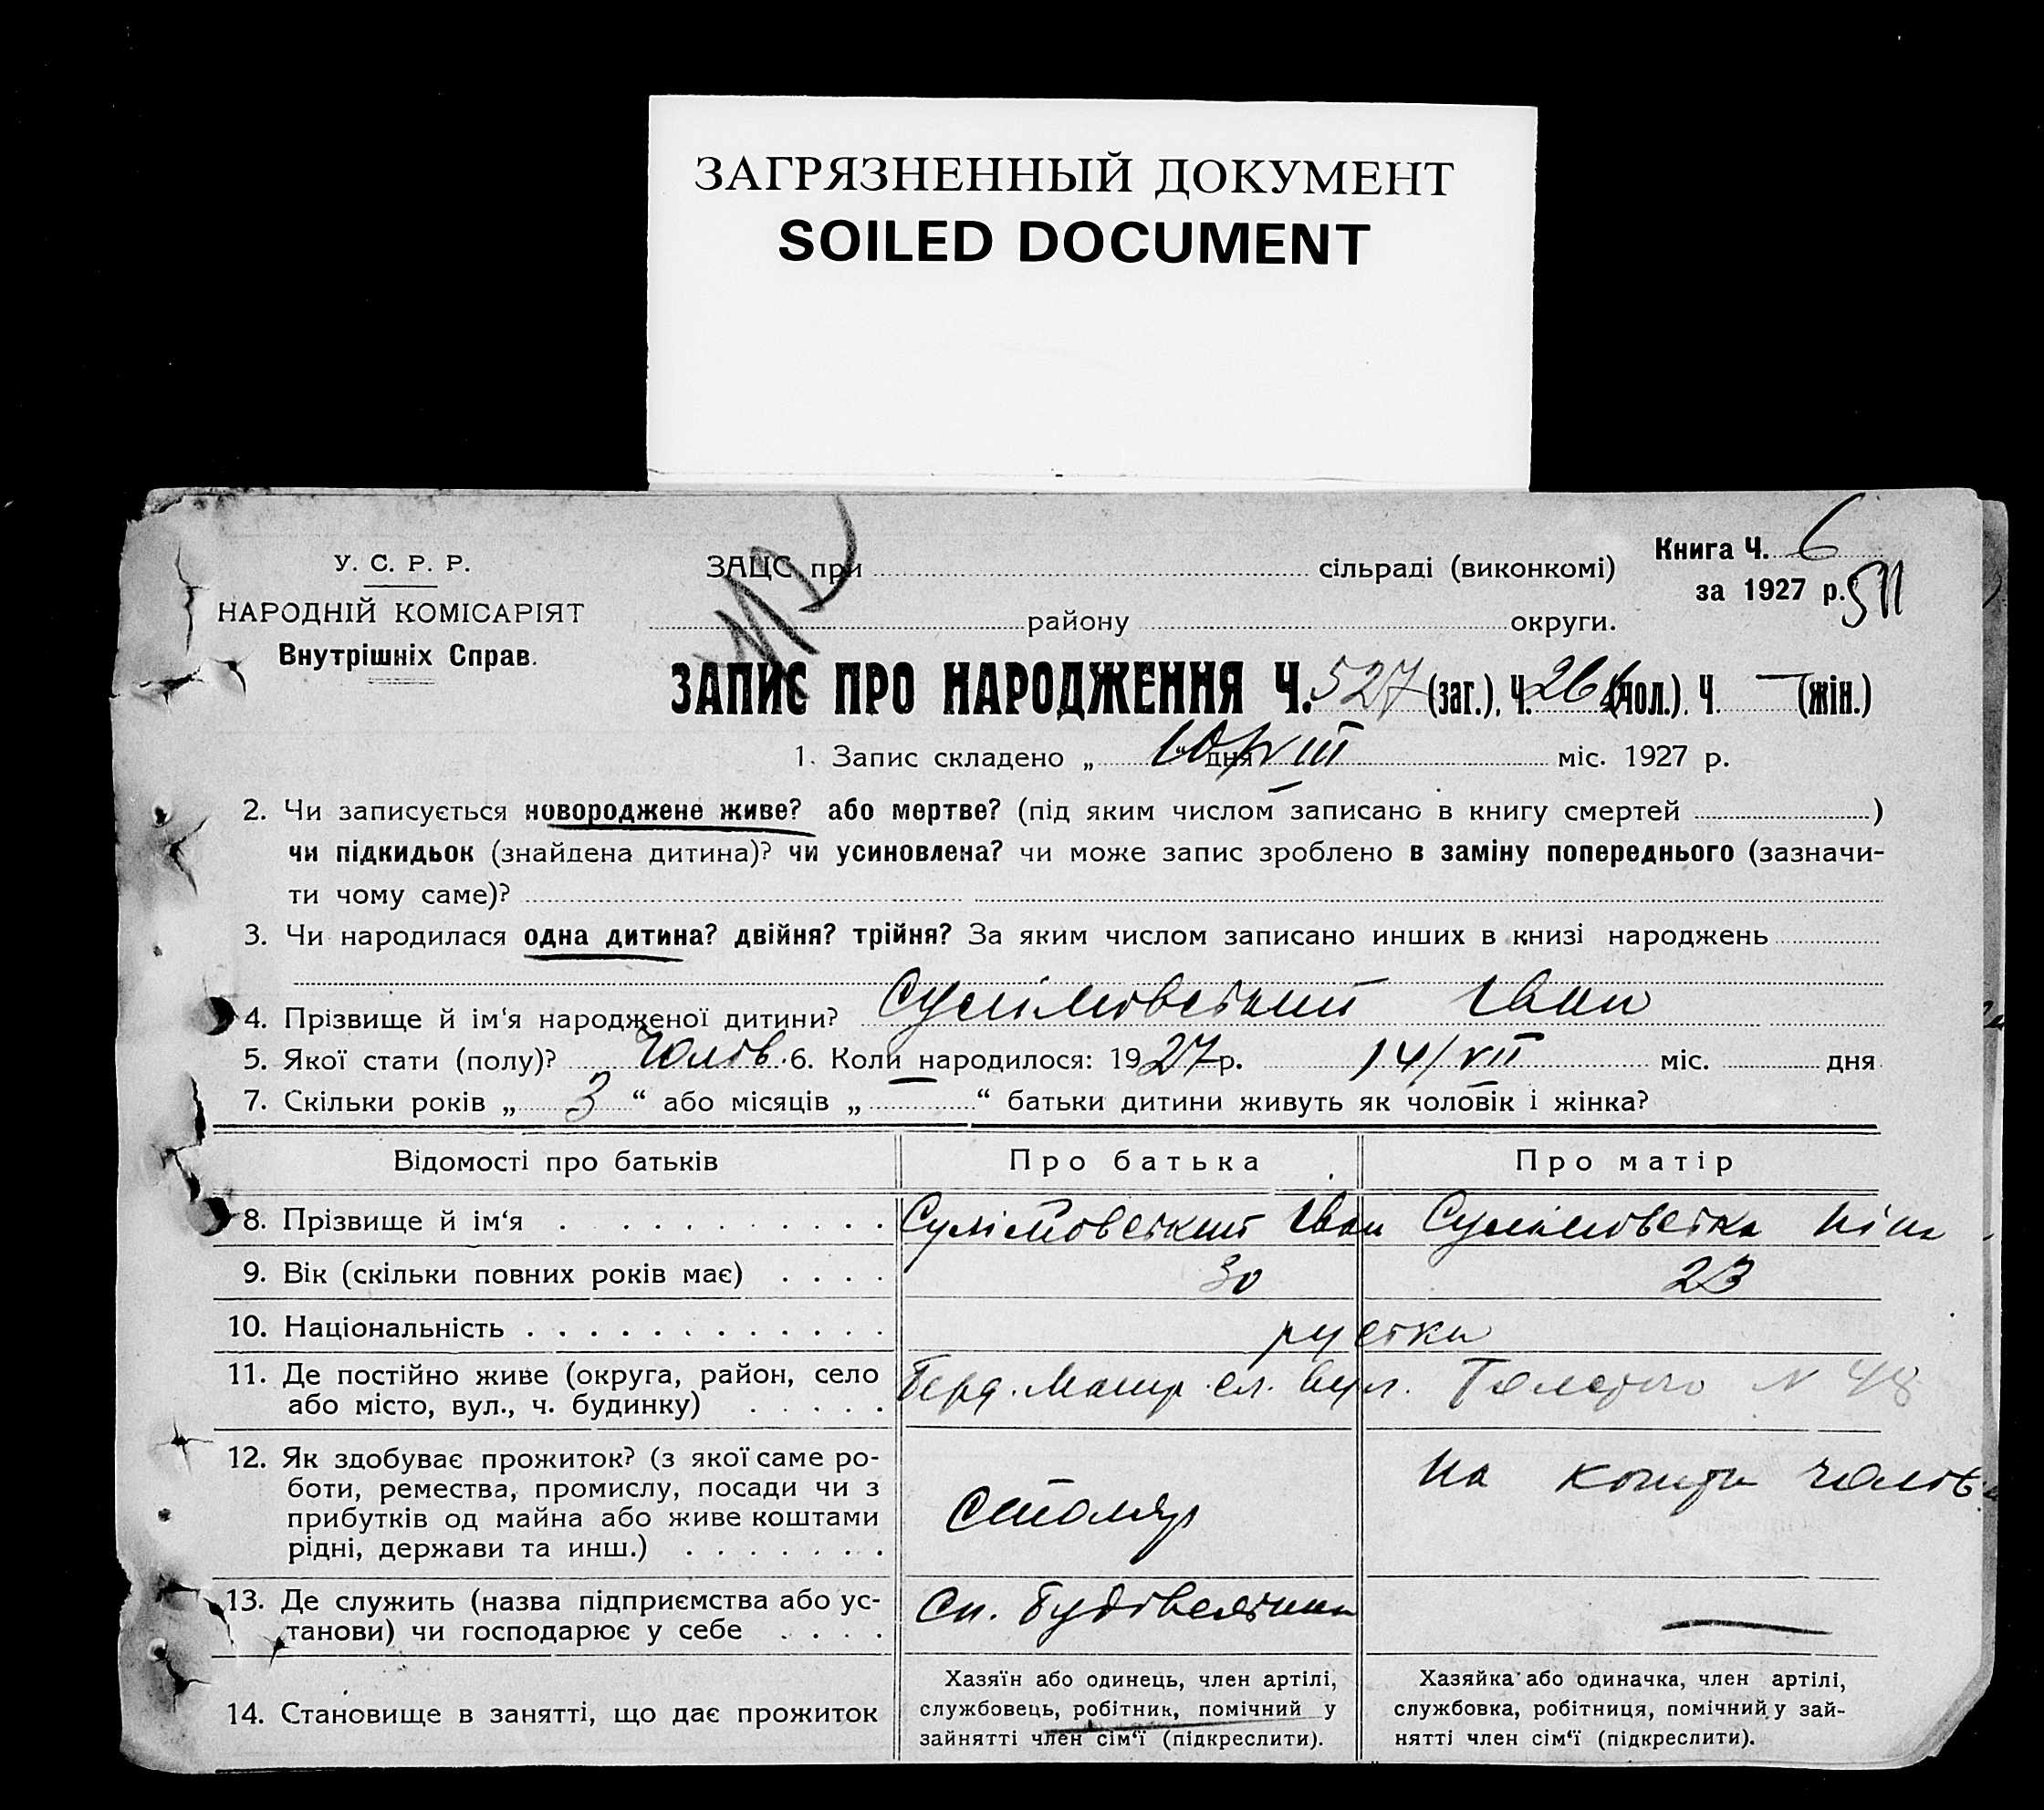 ЗАГРЯЗНЕННЫЙ ДОКУМЕНТ
SOILED DOCUMENT
Книга Ч. 6
за 1927 р.
У. С. Р. Р.
НАРОДНІЙ КОМІСАРІЯТ
Внутрішніх Справ.
ЗАЦС при сільраді (виконкомі)
району округи.
ЗАПИС ПРО НАРОДЖЕННЯ Ч. 527 (заг.), Ч. 266 (чол.). Ч. — (жін.)
1. Запис складено „ 10/VIII “ дня міс. 1927 р.
2. Чи записується новороджене живе? або мертве? (під яким числом записано в книгу смертей )
чи підкидьок (знайдена дитина)? чи усиновлена? чи може запис зроблено в заміну попереднього (зазначи-
ти чому саме)?
3. Чи народилася одна дитина? двійня? трійня? За яким числом записано инших в книзі народжень
4. Прізвище й ім‘я народженої дитини? Сулімовський Іван
5. Якої стати (полу)? Чолов. 6. Коли народилося: 1927 р. 14/VII міс. дня
7. Скільки років „ 3 “ або місяців „ — “ батьки дитини живуть як чоловік і жінка?
Відомості про батьків Про батька Про матір
8. Прізвище й ім‘я Сулімовський Іван Сулімовська
9. Вік (скільки повних років має) 30 23
10. Національність
11. Де постійно живе (округа, район, село
або місто, вул., ч. будинку) вул. Толстого N 48
12. Як здобуває прожиток? (з якої саме ро-
боти, ремества, промислу, посади чи з
прибутків од майна або живе коштами
рідні, держави та инш.) Столяр На кошти чолов.
13. Де служить (назва підприємства або ус-
танови) чи господарює у себе —
14. Становище в занятті, що дає прожиток
Хазяїн або одинець, член артілі,
службовець, робітник, помічний у
зайнятті член сім‘ї (підкреслити).
Хазяйка або одиначка, член артілі,
службовка, робітниця, помічний у зай-
нятті член сім‘ї (підкреслити).